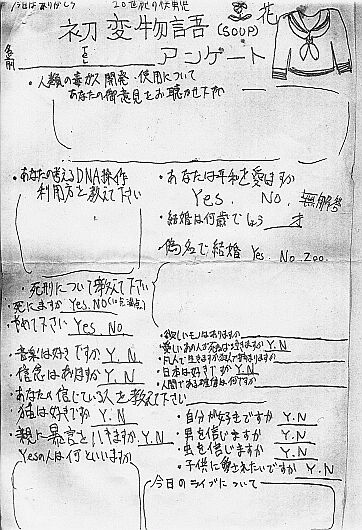 今日はありがとう
20世紀の伏男児
花
初変物語 (SOUP)
名前
アンケート
・人類の毒ガス開発・使用について
あなたの御意見をお聴かせ下さい
・あなたの考えるDNA操作
利用方を教えて下さい
・あなたは平和を愛しますか
Yes. No. 無解答
・結婚は何歳でしょう 才
偽名で結婚 Yes. No. 200.
・死刑について教えて下さい
・死にますか Yes. No
やめて下さい Yes No
・音楽は好きですか Y.N
・信念はありますか Y.N
・あなたの信じている人を教えて下さい
猫は好きですか Y.N
・親に暴言をハキますか Y.N
Yesの人は何といいますか
・欲しいモノはありますか
・日本は好きですか Y.N
・人間である確信は何ですか
・自分が好きですか Y.N
・男を信じますか Y.N
・虫を信じますか Y.N
・子供に愛されたいですか Y.N
今日のライブについて